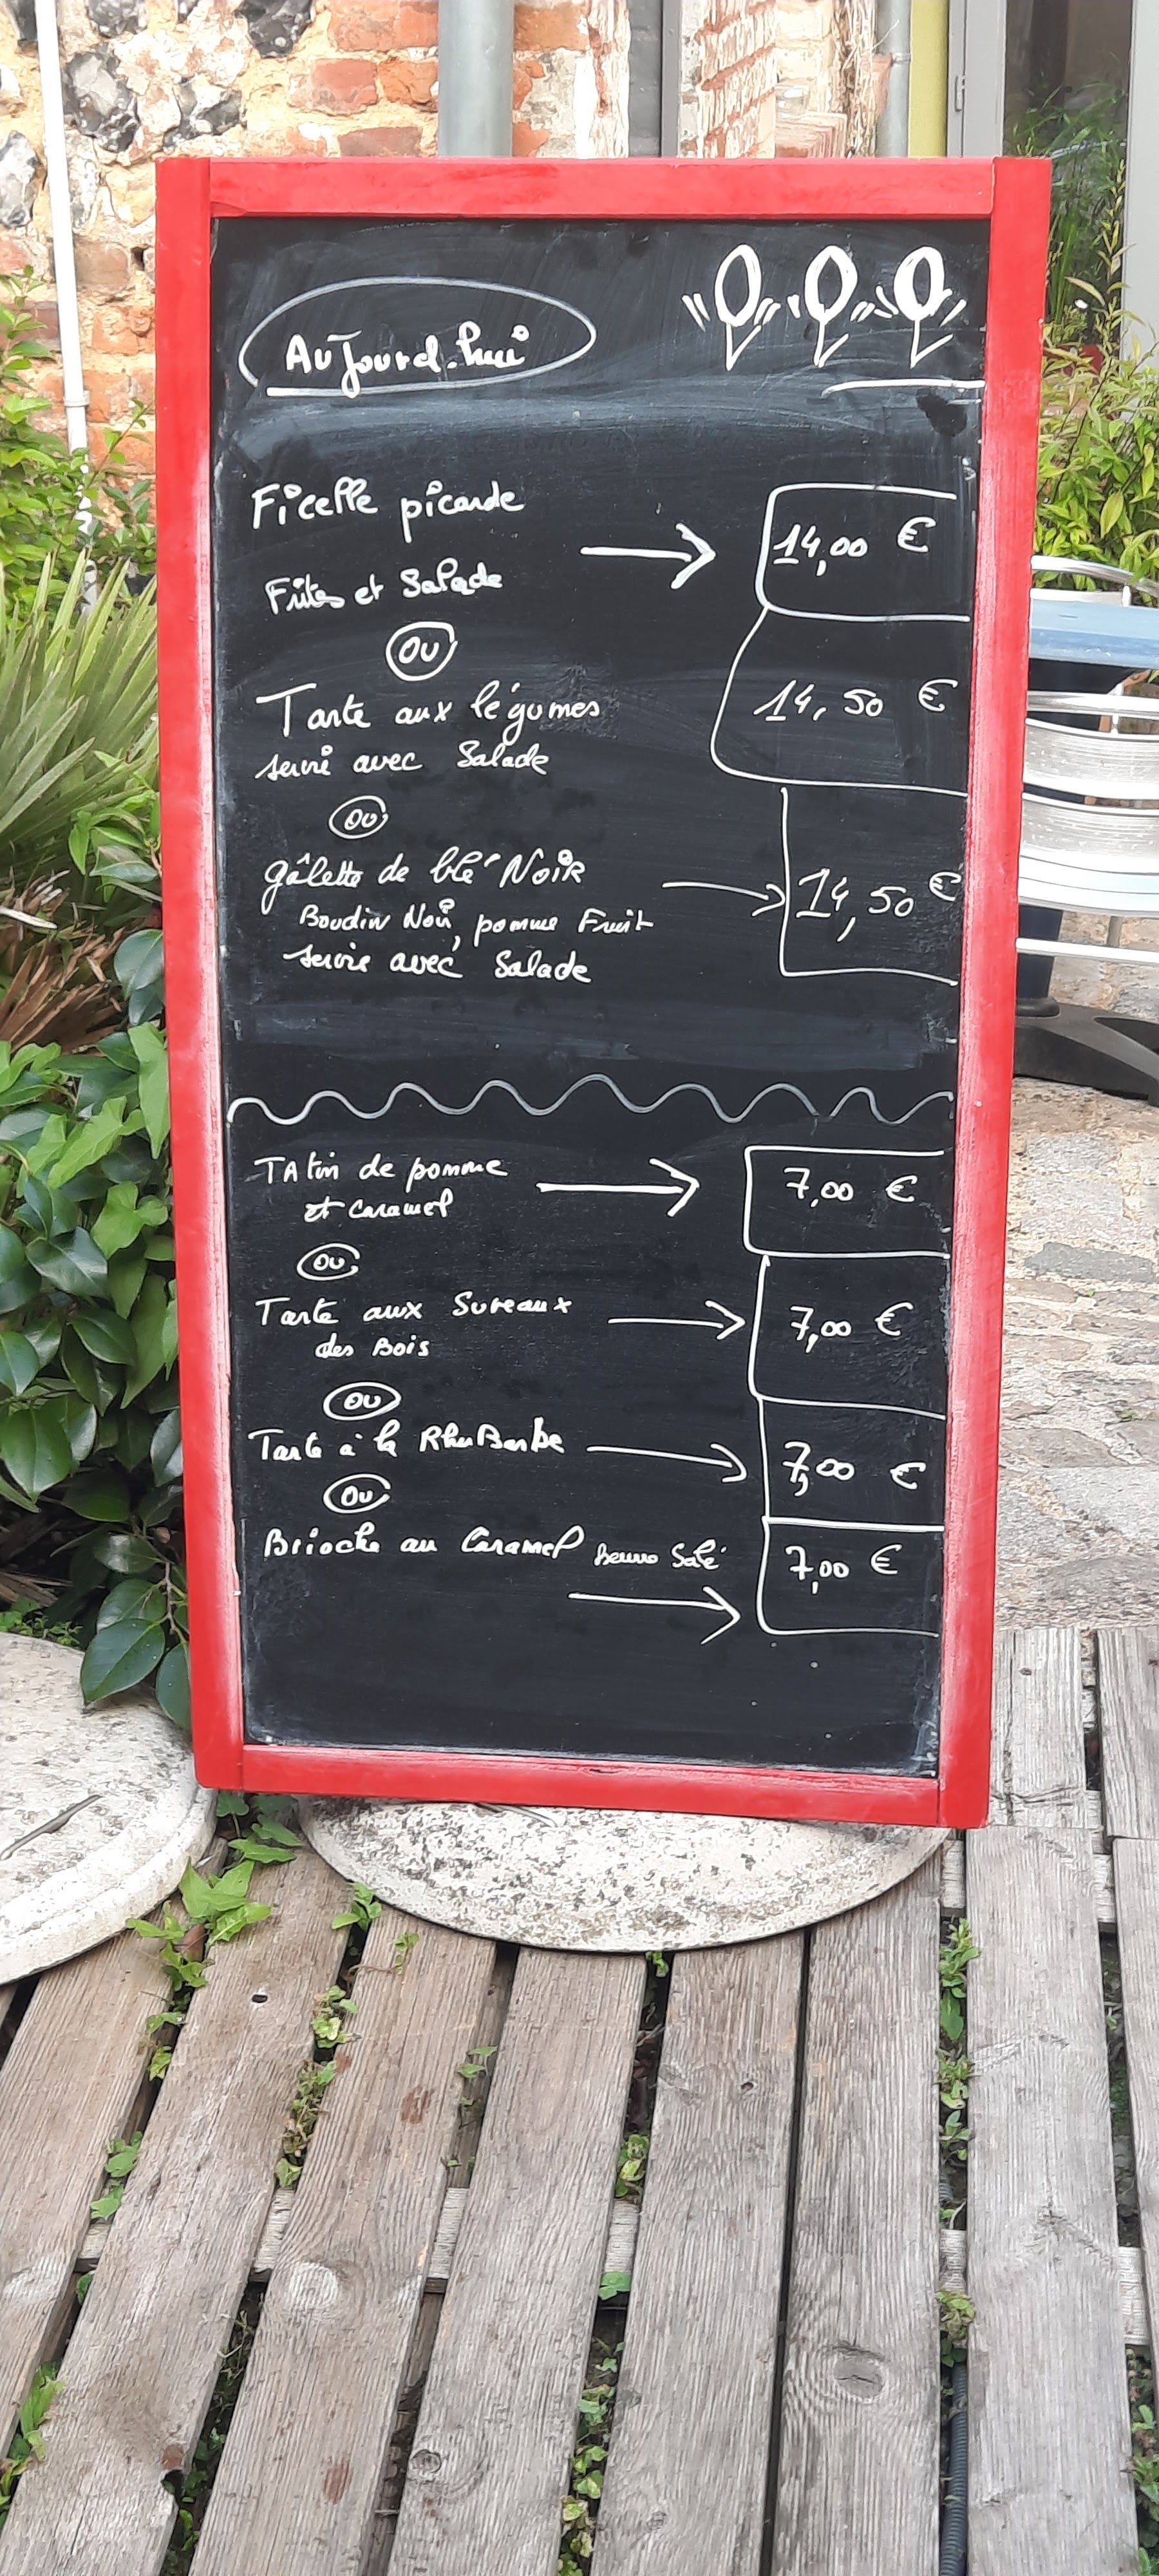 Aujourd'hui
Ficelle picarde
Frites et Salade
14,00 €
OU
Tarte aux légumes
servie avec Salade
14,50 €
OU
gâlette de blé Noir
Boudin Noir, pomme Fruit
servie avec Salade
14,50 €
TAtin de pomme
et Caramel
7,00 €
OU
Tarte aux Sureaux
des Bois
7,00 €
OU
Tarte à la RhuBarbe
7,00 €
OU
Brioche au Caramel Beurre Salé
7,00 €